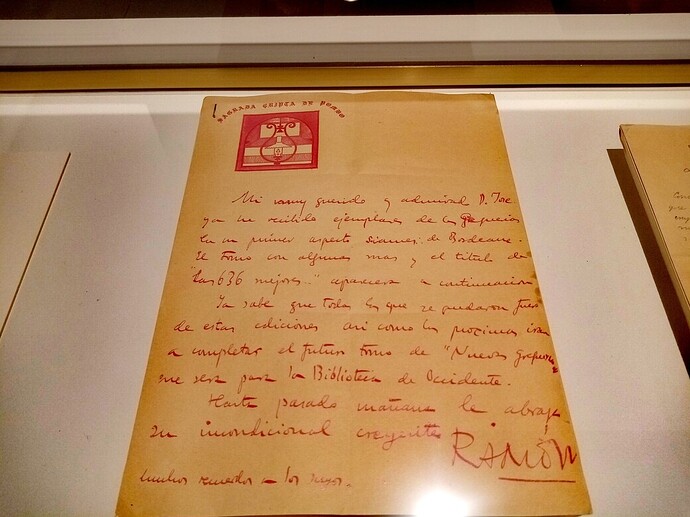 SAGRADA CRIPTA DE POMBO
Mi muy querido y admirado D. Jose
ya he recibido ejemplares de las Greguerías
en un primer aspecto siames: de Bordeaux.
El tomo con algunas mas y el titulo de
"Las 636 mejores" aparecera a continuacion
Ya sabe que todas las que se quedaron fuera
de estas ediciones asi como las proximas iran
a completar el futuro tomo de "Nuevas greguerias
que sera para la Biblioteca de Occidente.
Hasta pasado mañana le abraza
su incondicional creyente
RAMÓN
Muchos recuerdos a los suyos.